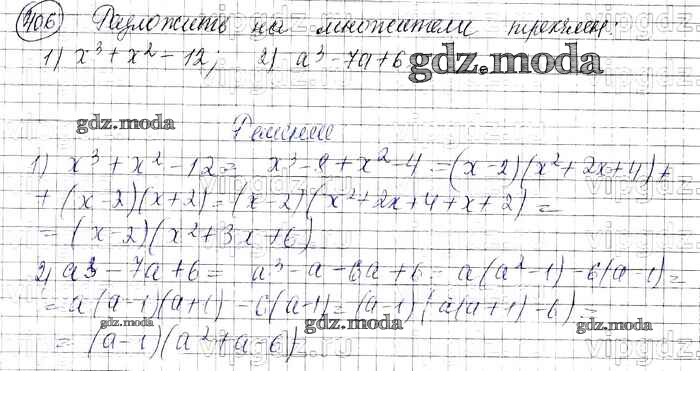 406 Разложить на множители трехчлен:
1) x³ + x² - 12; 2) a³ - 7a + 6
gdz.moda
gdz.moda
Решение
1) x³ + x² - 12 = x³ - 8 + x² - 4 = (x - 2)(x² + 2x + 4) +
+ (x - 2)(x + 2) = (x - 2)(x² + 2x + 4 + x + 2) =
= (x - 2)(x² + 3x + 6)
2) a³ - 7a + 6 = a³ - a - 6a + 6 = a(a² - 1) - 6(a - 1) =
= a(a - 1)(a + 1) - 6(a - 1) = (a - 1)(a(a + 1) - 6) =
gdz.moda gdz.moda gdz.moda
= (a - 1)(a² + a - 6)